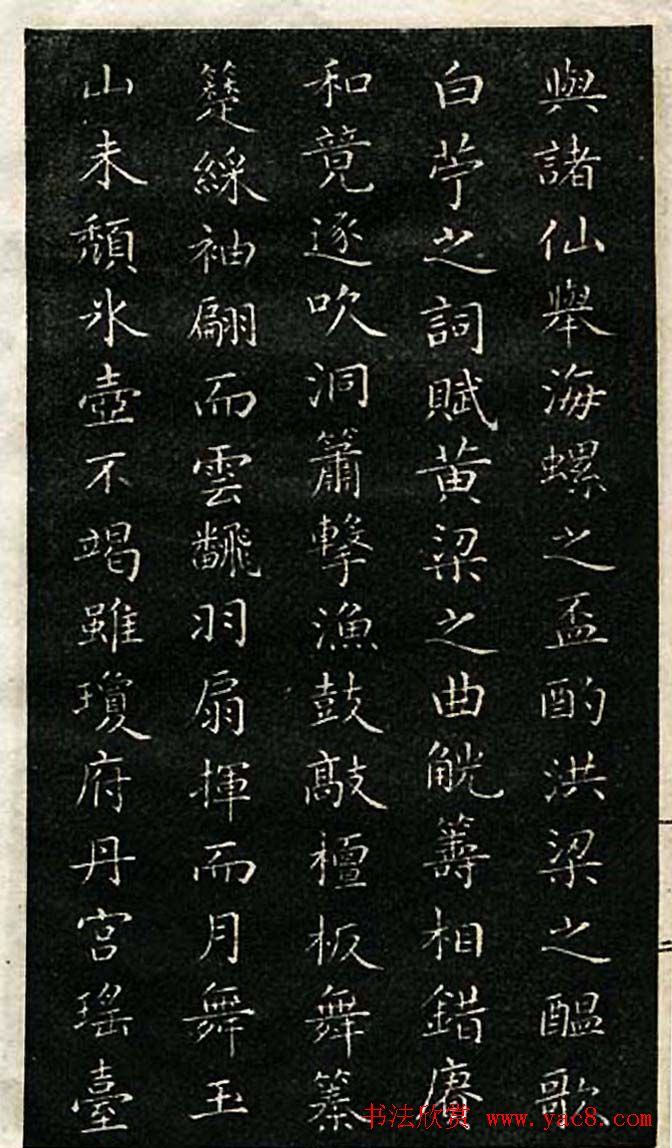 與諸仙舉海螺之盃酌洪梁之醞歌
白苧之詞賦黃粱之曲觥籌相錯賡
和競逐吹洞簫擊漁鼓敲檀板舞篆
簅綵袖翩而雲飜羽扇揮而月舞玉
山未頹氷壺不竭雖瓊府丹宮瑤臺
书法欣赏 www.yac8.com